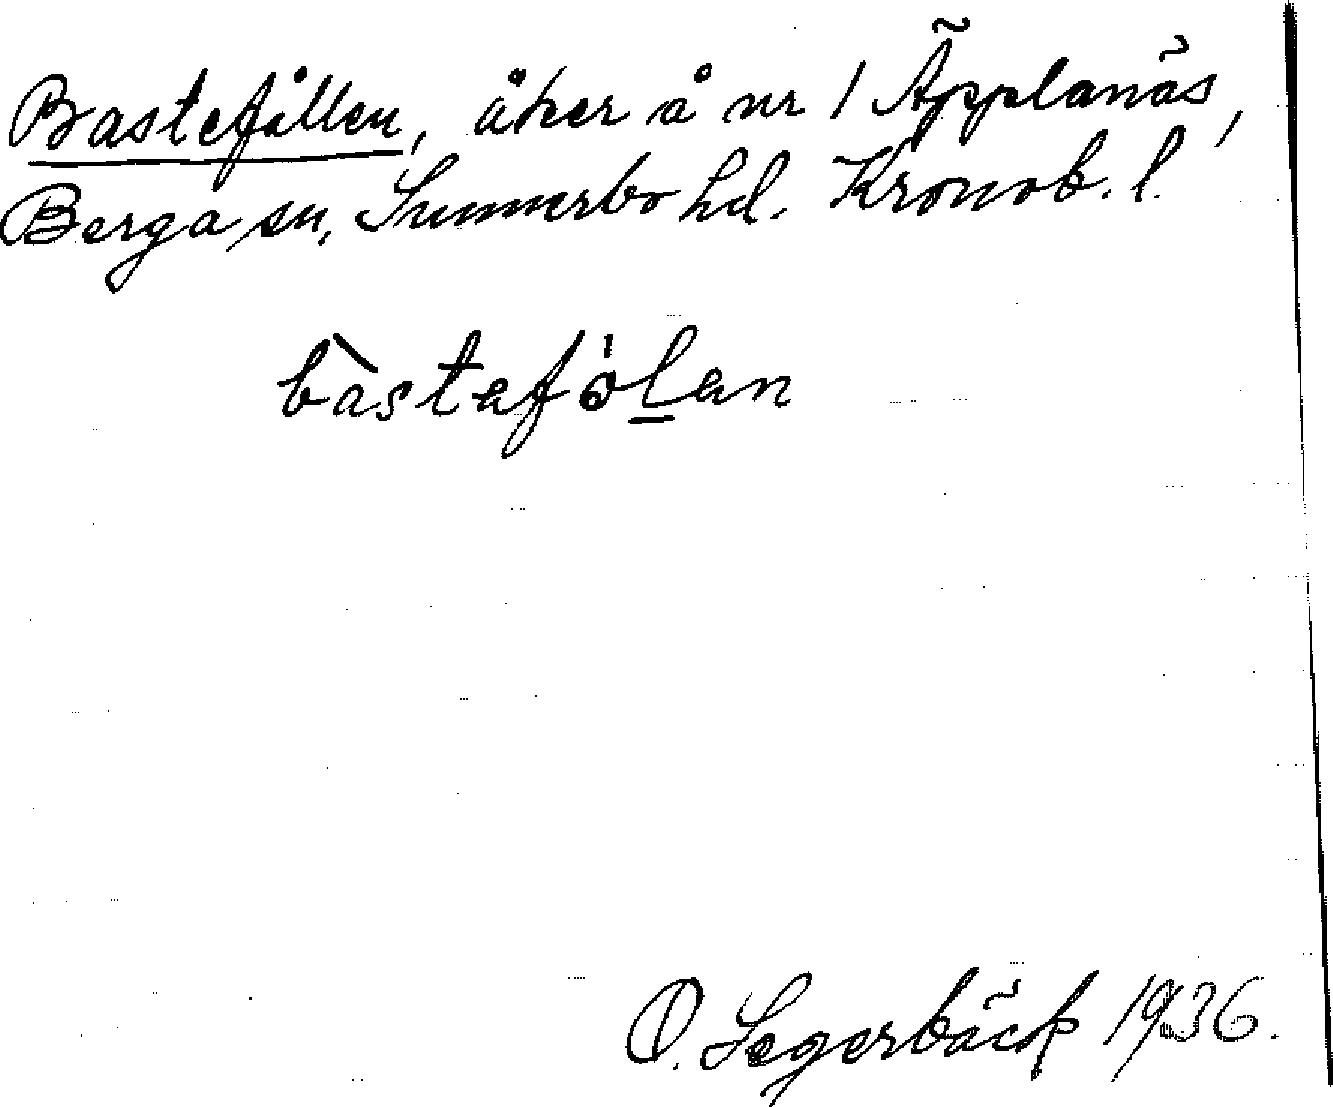 Bastefållen, åker å nr 1 Äpplanäs,
Berga sn, Sunnerbo hd. Kronob. l.
bàstafólan
O. Segerbäck 1936.